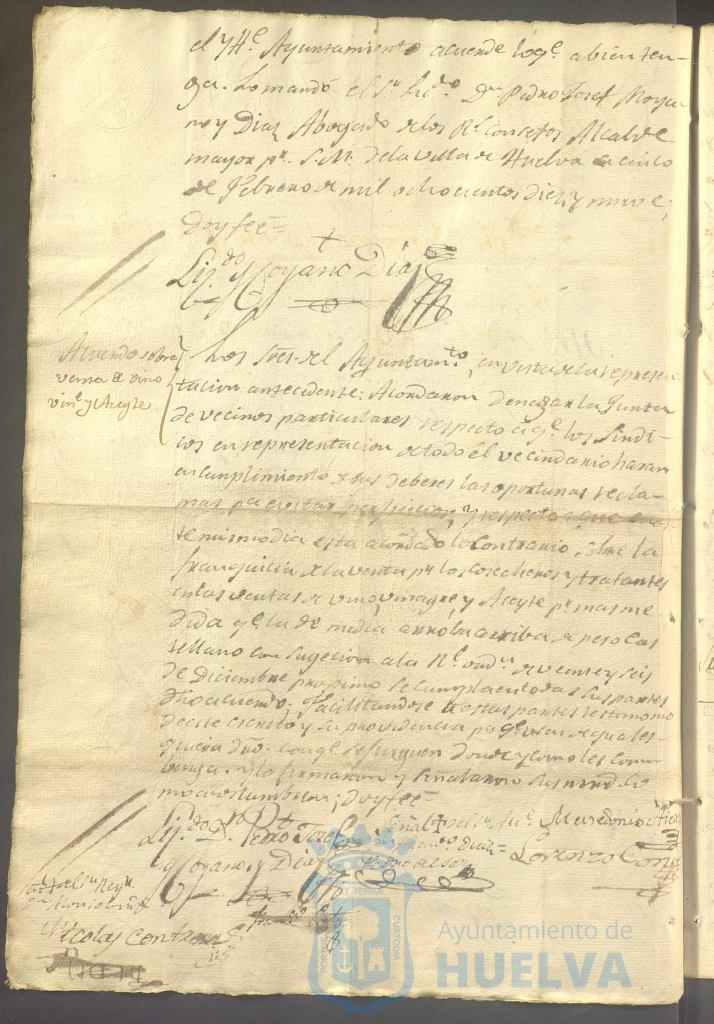 el Yll.e Ayuntamiento acuerde loq.e a bien ten-
ga. Lo mandó el S.or Lic.do D.n Pedro Josef Moya-
no y Diaz Abogado de los R.s Consejos Alcalde
mayor p.r S.M. de la villa de Huelva en cinco
de Febrero de mil ochocientos diez y nueve,
doy feé=
Liz.do Moyano Diaz
Acuerdo sobre
venta de vino
vin.e y Aceyte
Los Sres. del Ayuntam.to, en vista de la represen-
tacion antecedente: Acordaron denegar la Junta
de vecinos particulares respecto á q.e los Sindi-
cos en representacion de todo el vecindario haran
en cumplimiento de sus deberes las oportunas recla-
mas pa evitar perjuicios, y respecto a que en es-
te mismo dia esta acordado lo contrario, sobre la
franquicia de la venta p.r los cosecheros y tratantes
en las ventas de vino, vinagre, y Aceyte p.r mas me-
dida q.e la de media arroba arriba de peso cas-
tellano con sugecion a la R.l ord.n de veinte y seis
de Diciembre proximo se cumpla en todas sus partes
dho acuerdo, facilitandose a estas partes testimonio
de este escrito y su providencia
conq.e se furguen donde y como les comb-
benga. Y lo firmaron y señalaron sus mrds. co-
mo acostumbran; doy feé=
Liz.do D. Pedro Josef
Moyano y Diaz
Señal + del
Macedonio
Lorenzo
Nicolas Contreras
Ayuntamiento de
HUELVA